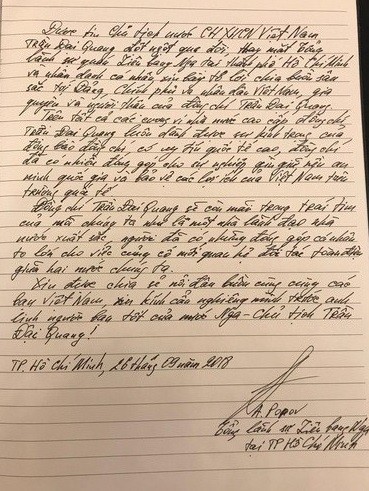 Được tin Chủ tịch nước CHXHCN Việt Nam
Trần Đại Quang đột ngột qua đời, thay mặt Tổng
lãnh sự quán Liên bang Nga tại thành phố Hồ Chí Minh
và nhân danh cá nhân, xin bày tỏ lời chia buồn sâu
sắc tới Đảng, Chính phủ và nhân dân Việt Nam, gia
quyến và người thân của đồng chí Trần Đại Quang.
Trên tất cả các cương vị nhà nước cao cấp đồng chí
Trần Đại Quang luôn dành được sự kính trọng của
đông bào đồng chí có uy tín quốc tế cao, đồng chí
đã có nhiều đóng góp cho sự nghiệp gìn giữ nền an
ninh quốc gia và bảo vệ các lợi ích của Việt Nam trên
trường quốc tế.
Đồng chí Trần Đại Quang sẽ còn mãi trong trái tim
của mỗi chúng ta như là một nhà lãnh đạo nhà
nước xuất sắc, người đã có những đóng góp cá nhân
to lớn cho việc củng cố mối quan hệ đối tác toàn diện
giữa hai nước chúng ta.
Xin được chia sẻ nỗi đau buồn cùng các
bạn Việt Nam, xin kính cẩn nghiêng mình trước anh
linh người bạn tốt của nước Nga - Chủ tịch Trần
Đại Quang!
TP. Hồ Chí Minh, 26 tháng 09 năm 2018
A. Popov
Tổng lãnh sự Liên bang Nga
tại TP Hồ Chí Minh